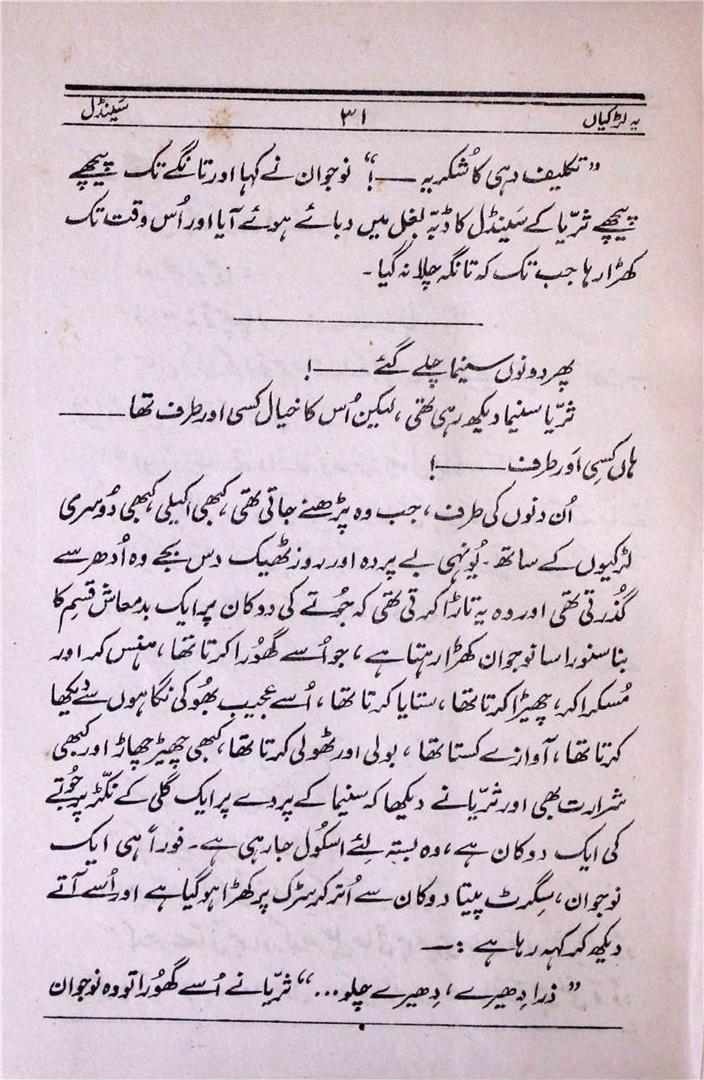 یہ لڑکیاں ۳۱ سَینڈل
”تکلیف دہی کا شُکریہ ——!“ نوجوان نے کہا اور تانگے تک پیچھے
پیچھے ثریّا کے سَینڈل کا ڈبّہ بغل میں دبائے ہوئے آیا اور اُس وقت تک
کھڑا رہا جب تک کہ تانگہ چلا نہ گیا۔
پھر دونوں سنیما چلے گئے ——!
ثریّا سنیما دیکھ رہی تھی، لیکن اُس کا خیال کسی اور طرف تھا ——
ہاں کسِی اَور طرف ——!
اُن دنوں کی طرف، جب وہ پڑھنے جاتی تھی، کبھی اکیلی، کبھی دُوسری
لڑکیوں کے ساتھ۔ یُونہی بے پردہ اور روز ٹھیک دس بجے وہ اُدھر سے
گذُرتی تھی اور وہ یہ تاڑا کرتی تھی کہ جُوتے کی دوکان پر ایک بدمعاش قسِم کا
بنا سنورا سا نوجوان کھڑا رہتا ہے، جو اُسے گھُورا کرتا تھا، ہنس کر اور
مُسکرا کر، چھیڑا کرتا تھا، ستایا کرتا تھا، اُسے عجیب بھُوکی نگاہوں سے دیکھا
کرتا تھا، آوازے کستا تھا، بولی اور ٹھولی کرتا تھا، کبھی چھیڑ چھاڑ اور کبھی
شرارت بھی اور ثریّا نے دیکھا کہ سنیما کے پردے پر ایک گلی کے نکّڑ پر جُوتے
کی ایک دوکان ہے، وہ بستہ لئِے اسکُول جا رہی ہے۔ فوراً ہی ایک
نوجوان، سِگرٹ پیتا دوکان سے اُتر کر سڑک پر کھڑا ہو گیا ہے اور اُسے آتے
دیکھ کر کہہ رہا ہے :—
”ذرا دِھیرے، دِھیرے چلو...“ ثریّا نے اُسے گھُورا تو وہ نوجوان